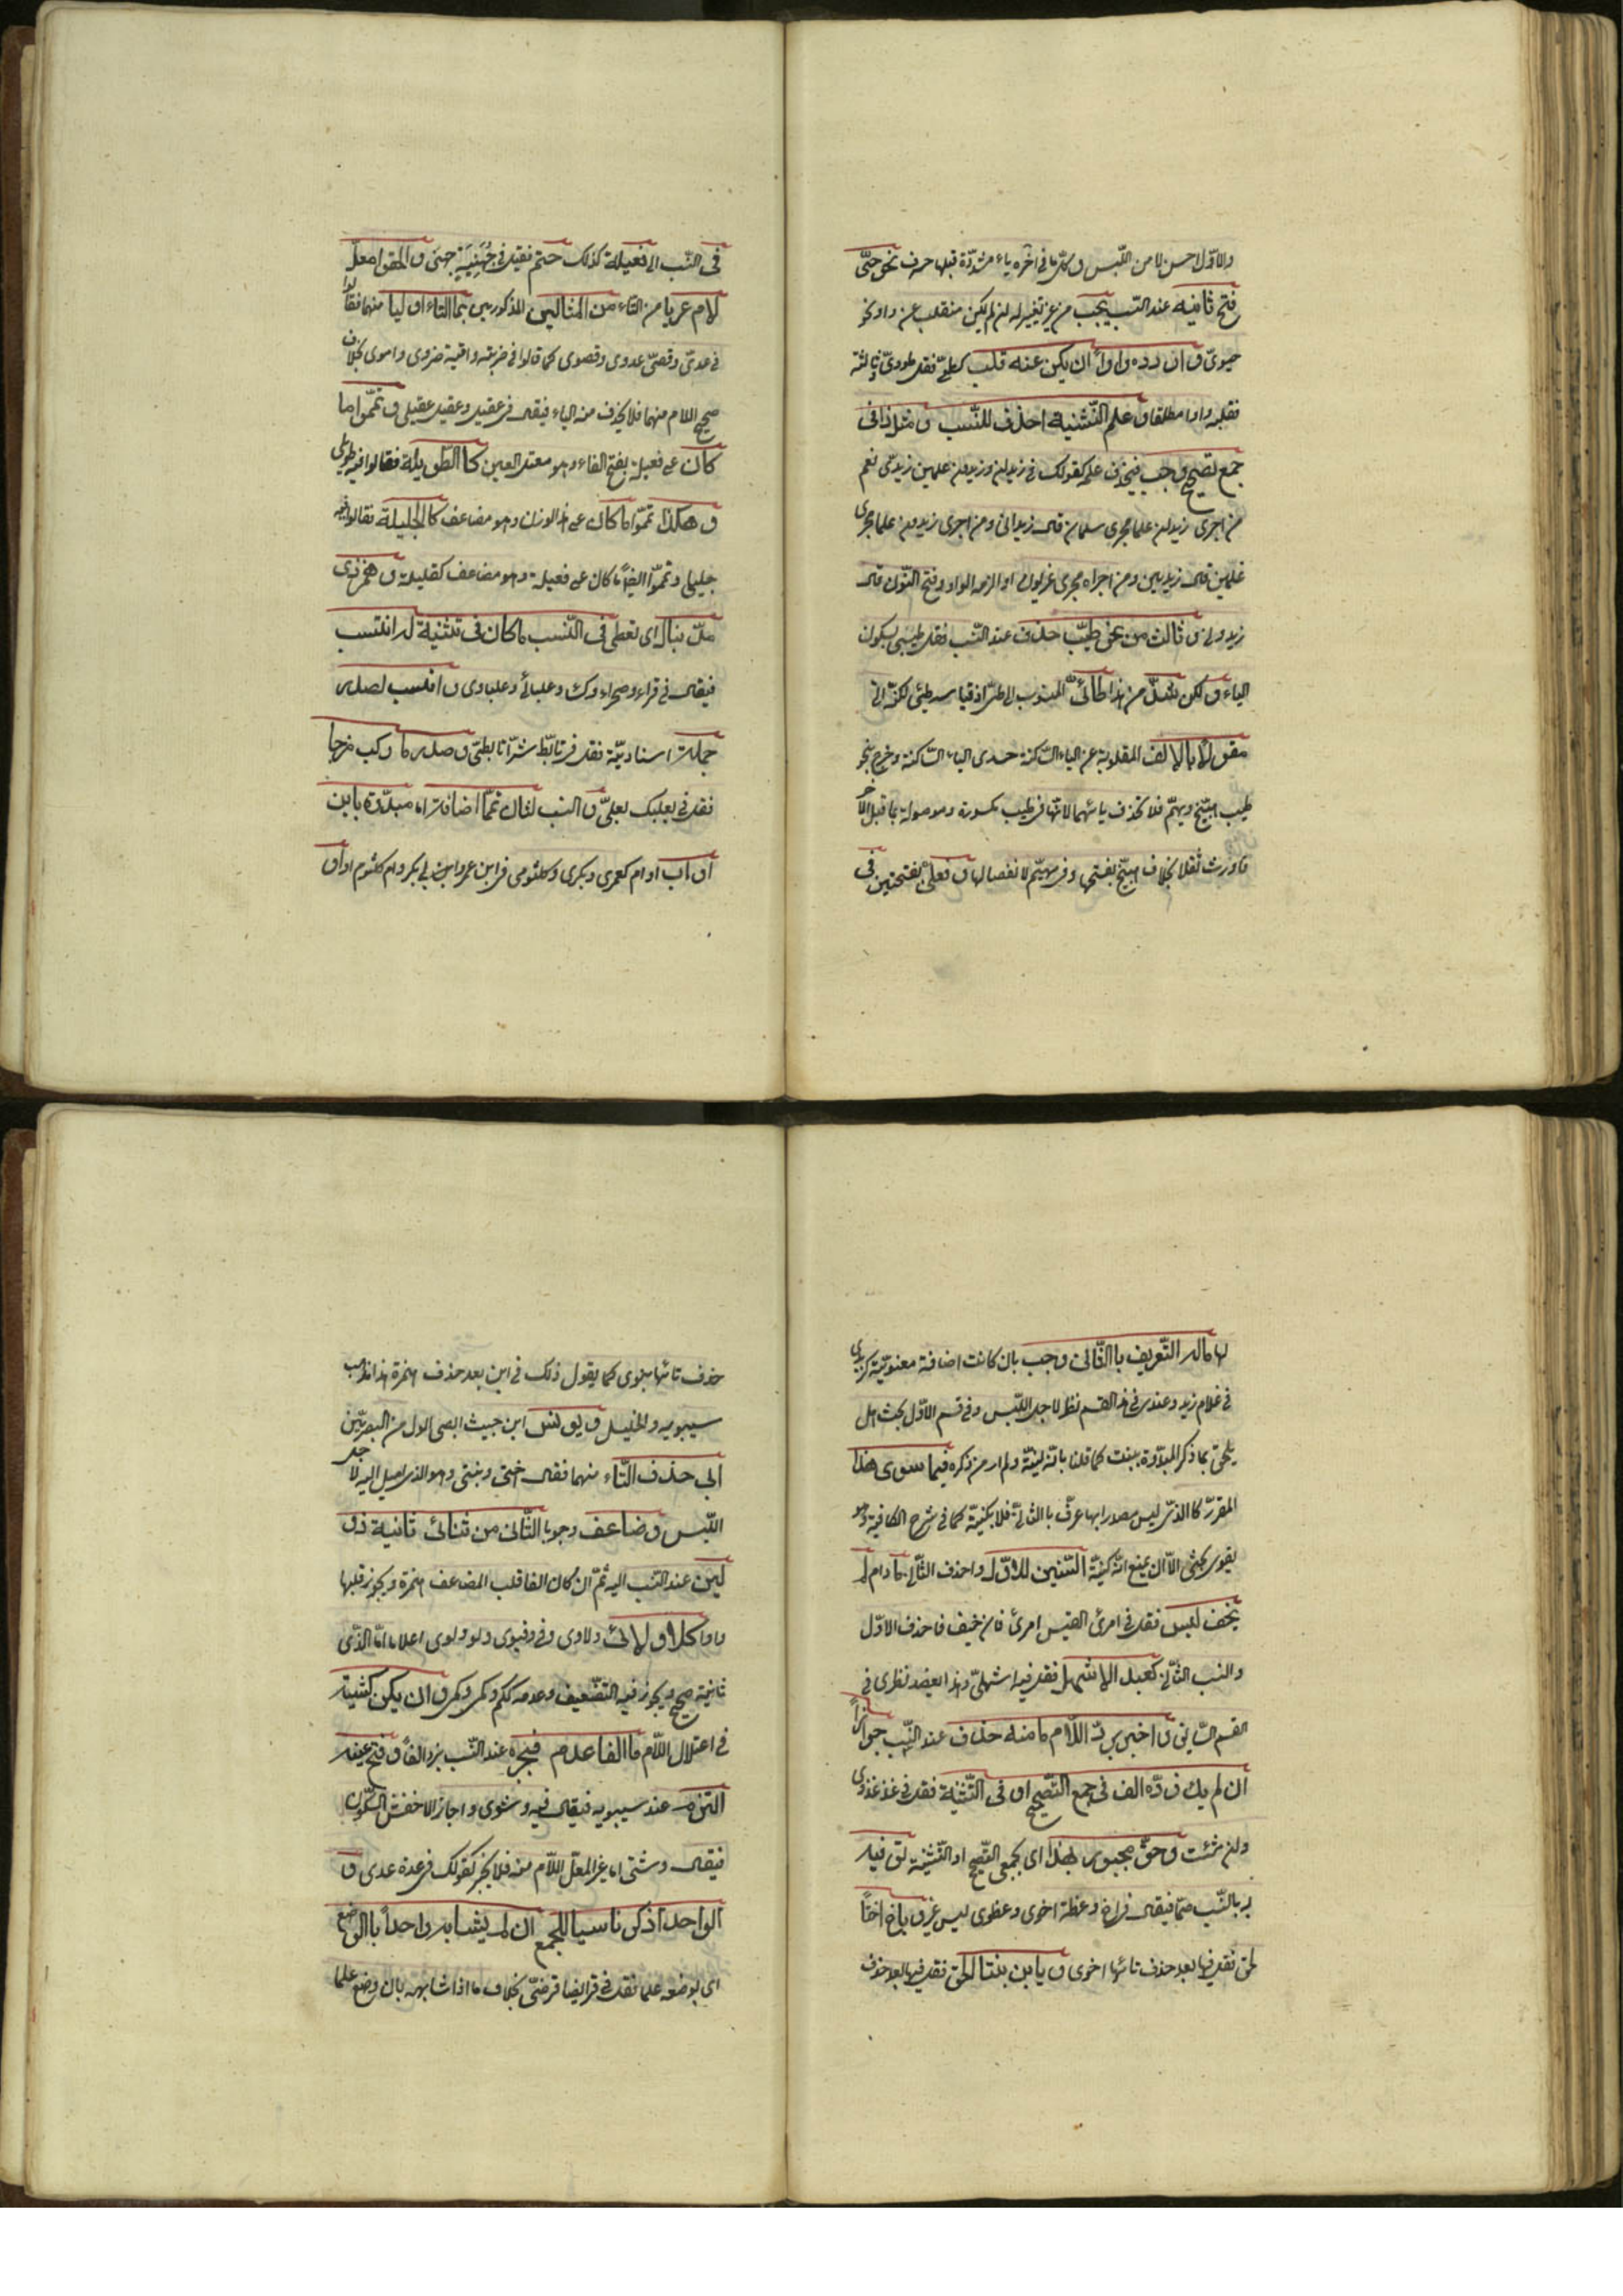 والاوّل احسن لامن اللّبس و كلّ ما فى آخره ياء مشدّدة قبلها حرف نحو حىّ
فتح ثانيه عند النّسب يجب من غير تغيير له ان لم يكن منقلب عن واو نحو
حيوىّ و ان رده واواً ان يكن عنه قلب كطىّ فقل طووىّ و ثالثه
فقلبه واوا مطلقا و علم التّثنية احذف للنّسب و مثل ذا فى
جمع تصحيح وجب فيحذف علمه كقولك فى زيدان وزيدون علمين زيدىّ نعم
من اجرى زيدان علما مجرى سلمان قال زيدانى ومن اجرى زيدون علما مجرى
غسلين قال زيدينى ومن اجراه مجرى عربون او الزمه الواو و فتح النّون قال
زيدونى و ثالث من نحو طيّب حذف عند النّسب فقل طيبى بسكون
الياء و لكن شذّ من هذا طائىّ المنسوب الى طىّ اذ قياسه طيئى لكنّه اتى
مقولا بالالف المقلوبة عن الياء السّاكنة حدى الياء السّاكنة وخرج بنحو
طيب هبيّخ ومهيّم فلا تحذف يائهما لانّها فى طيب مكسورة وموصولة بما قبل الآخر
فاورث ثقلا بخلاف هبيّخ بفتحها وفى مهيّم لانفصالها و فعلىّ بفتحتين فى
فى النّسب الى فعيلة كذلك حتم فقيل فى جهينة جهنى و الحقوا معلّ
لام عريا من التاء من المثالين المذكورين بما التاء اوليا منهما فقالوا
فى عدىّ وقصىّ عدوى وقصوى كما قالوا فى ضرية وامية ضروى واموى بخلاف
صحيح اللام منهما فلا يحذف منه الياء فيقال فى عقيل وعقيل عقيلى و تمّموا ما
كان على فعيلة بفتح الفاء وهو معتل العين كالطّويلة فقالوا فيه طويلى
و هكذا تمّموا ما كان على هذا الوزن وهو مضاعف كالجليلة فقالوا فيه
جليلى وتمّموا ايضاً ما كان على فعيلة وهو مضاعف كقليلة و همز ذى
مدّ ينال اى تعطى فى النّسب ما كان فى تثنية له انتسب
فيقال فى قراء وصحراء وكساء وعلباء وعلباوى و انسب لصدر
جملة اسناديّة فقل فى تابّط شرّا تابطىّ و صدر ما ركب مزجا
فقل فى بعلبك بعلىّ و انسب لثان تمّما اضافة اما مبدّوة بابن
او اب او ام كعمرى وبكرى وكلثومى فى ابن عمرو ابى بكر وام كلثوم او او
لها ماله التّعريف بالثّانى وجب بان كانت اضافة معنويّة كزيدى
فى غلام زيد وعندى فى هذا القسم نظر لاجل اللّبس وفى قسم الاوّل بحث هل
يلحق بما ذكر المبدّوة ببنت كما قلنا بانه ليتة ولم ار من ذكره فيما سوى هذا
المقرر كالذى ليس مصدرا بها عرّف بالثانى فلا بكنية كما فى شرح الكافية وهو
يقوى بحثى الاّ ان يمنع انّه كنيّة انسبن للاوّل واحذف الثّانى ما دام لم
يخف لبس فقل فى امرئ القيس امرئ فان خيف فاحذف الاوّل
وانسب الثّانى كعبد الاشهل فقل فيه اشهلىّ وهذا يعضد نظرى فى
القسم الثّانى و اجبر بردّ اللّام ما منه حذف عند النّسب جوازاً
ان لم يك ردّه الف فى جمع التّصحيح او فى التّثنية فقل فى غد غدوى
وان شئت وحقّ مجبور بهذا اى بجمعى التّصحيح او التّثنية توفية
به بالنّسب حتما فيقال فى اخ وعضة اخوى وعضوى ليس غير و باخ اختاً
الحق فقل فيها بعد حذف تائها اخوى و بابن بنتا الحق فقل فيها بعد حذف
حذف تائها بنوى كما يقول ذلك فى ابن بعد حذف الهمزة هذا مذهب
سيبويه والخليل و يونس ابن حبيب ابى الاول من البصريّين
ابى حذف التّاء منهما فقال اختى وبنتى وهو الذى اميل اليه لاجل
اللّبس و ضاعف وجوبا الثّانى من ثنائى ثانيه ذو
لين عند النّسب اليه ثمّ ان كان الفا قلب المضاعف همزة ويجوز قلبها
واوا كلا و لائى ولاوى وفى فى فيوى ولو ولوى اعلاما امّا الذّى
ثانية صحيح ويجوز فيه التضّعيف وعدمه ككم وكمى وكمّى و ان يكن كشية
فى اعتلال اللّام ما الفا عدم فجبره عند النّسب بردّ الفاً و فتح عينه
التزم عند سيبويه فيقال فيه وشوى واجاز الاخفش السّكون
فيقال وشيى اما غير المعلّ اللّام منه فلا يجبر كقولك فى عدة عدى و
الواحد اذكر ناسبا للجمع ان لم يشابه واحداً بالوضع
اى بوضعه علما فقل فى فرايض فرضىّ بخلاف ما اذا شابهه بان وضع علما